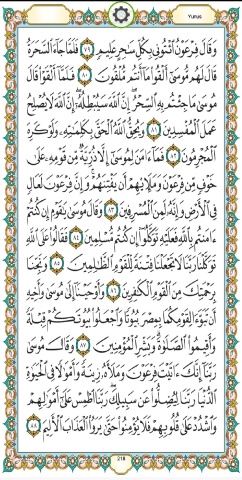 Yunus
وَقَالَ فِرْعَوْنُ ائْتُونِي بِكُلِّ سَاحِرٍ عَلِيمٍ ٧٩ فَلَمَّا جَاءَ السَّحَرَةُ
قَالَ لَهُم مُّوسَىٰ أَلْقُوا مَا أَنتُم مُّلْقُونَ ٨٠ فَلَمَّا أَلْقَوْا قَالَ
مُوسَىٰ مَا جِئْتُم بِهِ السِّحْرُ إِنَّ اللَّهَ سَيُبْطِلُهُ إِنَّ اللَّهَ لَا يُصْلِحُ
عَمَلَ الْمُفْسِدِينَ ٨١ وَيُحِقُّ اللَّهُ الْحَقَّ بِكَلِمَاتِهِ وَلَوْ كَرِهَ
الْمُجْرِمُونَ ٨٢ فَمَا آمَنَ لِمُوسَىٰ إِلَّا ذُرِّيَّةٌ مِّن قَوْمِهِ عَلَىٰ
خَوْفٍ مِّن فِرْعَوْنَ وَمَلَئِهِمْ أَن يَفْتِنَهُمْ وَإِنَّ فِرْعَوْنَ لَعَالٍ
فِي الْأَرْضِ وَإِنَّهُ لَمِنَ الْمُسْرِفِينَ ٨٣ وَقَالَ مُوسَىٰ يَا قَوْمِ إِن كُنتُمْ
آمَنتُم بِاللَّهِ فَعَلَيْهِ تَوَكَّلُوا إِن كُنتُم مُّسْلِمِينَ ٨٤ فَقَالُوا عَلَى اللَّهِ
تَوَكَّلْنَا رَبَّنَا لَا تَجْعَلْنَا فِتْنَةً لِّلْقَوْمِ الظَّالِمِينَ ٨٥ وَنَجِّنَا
بِرَحْمَتِكَ مِنَ الْقَوْمِ الْكَافِرِينَ ٨٦ وَأَوْحَيْنَا إِلَىٰ مُوسَىٰ وَأَخِيهِ
أَن تَبَوَّآ لِقَوْمِكُمَا بِمِصْرَ بُيُوتًا وَاجْعَلُوا بُيُوتَكُمْ قِبْلَةً
وَأَقِيمُوا الصَّلَاةَ وَبَشِّرِ الْمُؤْمِنِينَ ٨٧ وَقَالَ مُوسَىٰ
رَبَّنَا إِنَّكَ آتَيْتَ فِرْعَوْنَ وَمَلَأَهُ زِينَةً وَأَمْوَالًا فِي الْحَيَاةِ
الدُّنْيَا رَبَّنَا لِيُضِلُّوا عَن سَبِيلِكَ رَبَّنَا اطْمِسْ عَلَىٰ أَمْوَالِهِمْ
وَاشْدُدْ عَلَىٰ قُلُوبِهِمْ فَلَا يُؤْمِنُوا حَتَّىٰ يَرَوُا الْعَذَابَ الْأَلِيمَ ٨٨
218